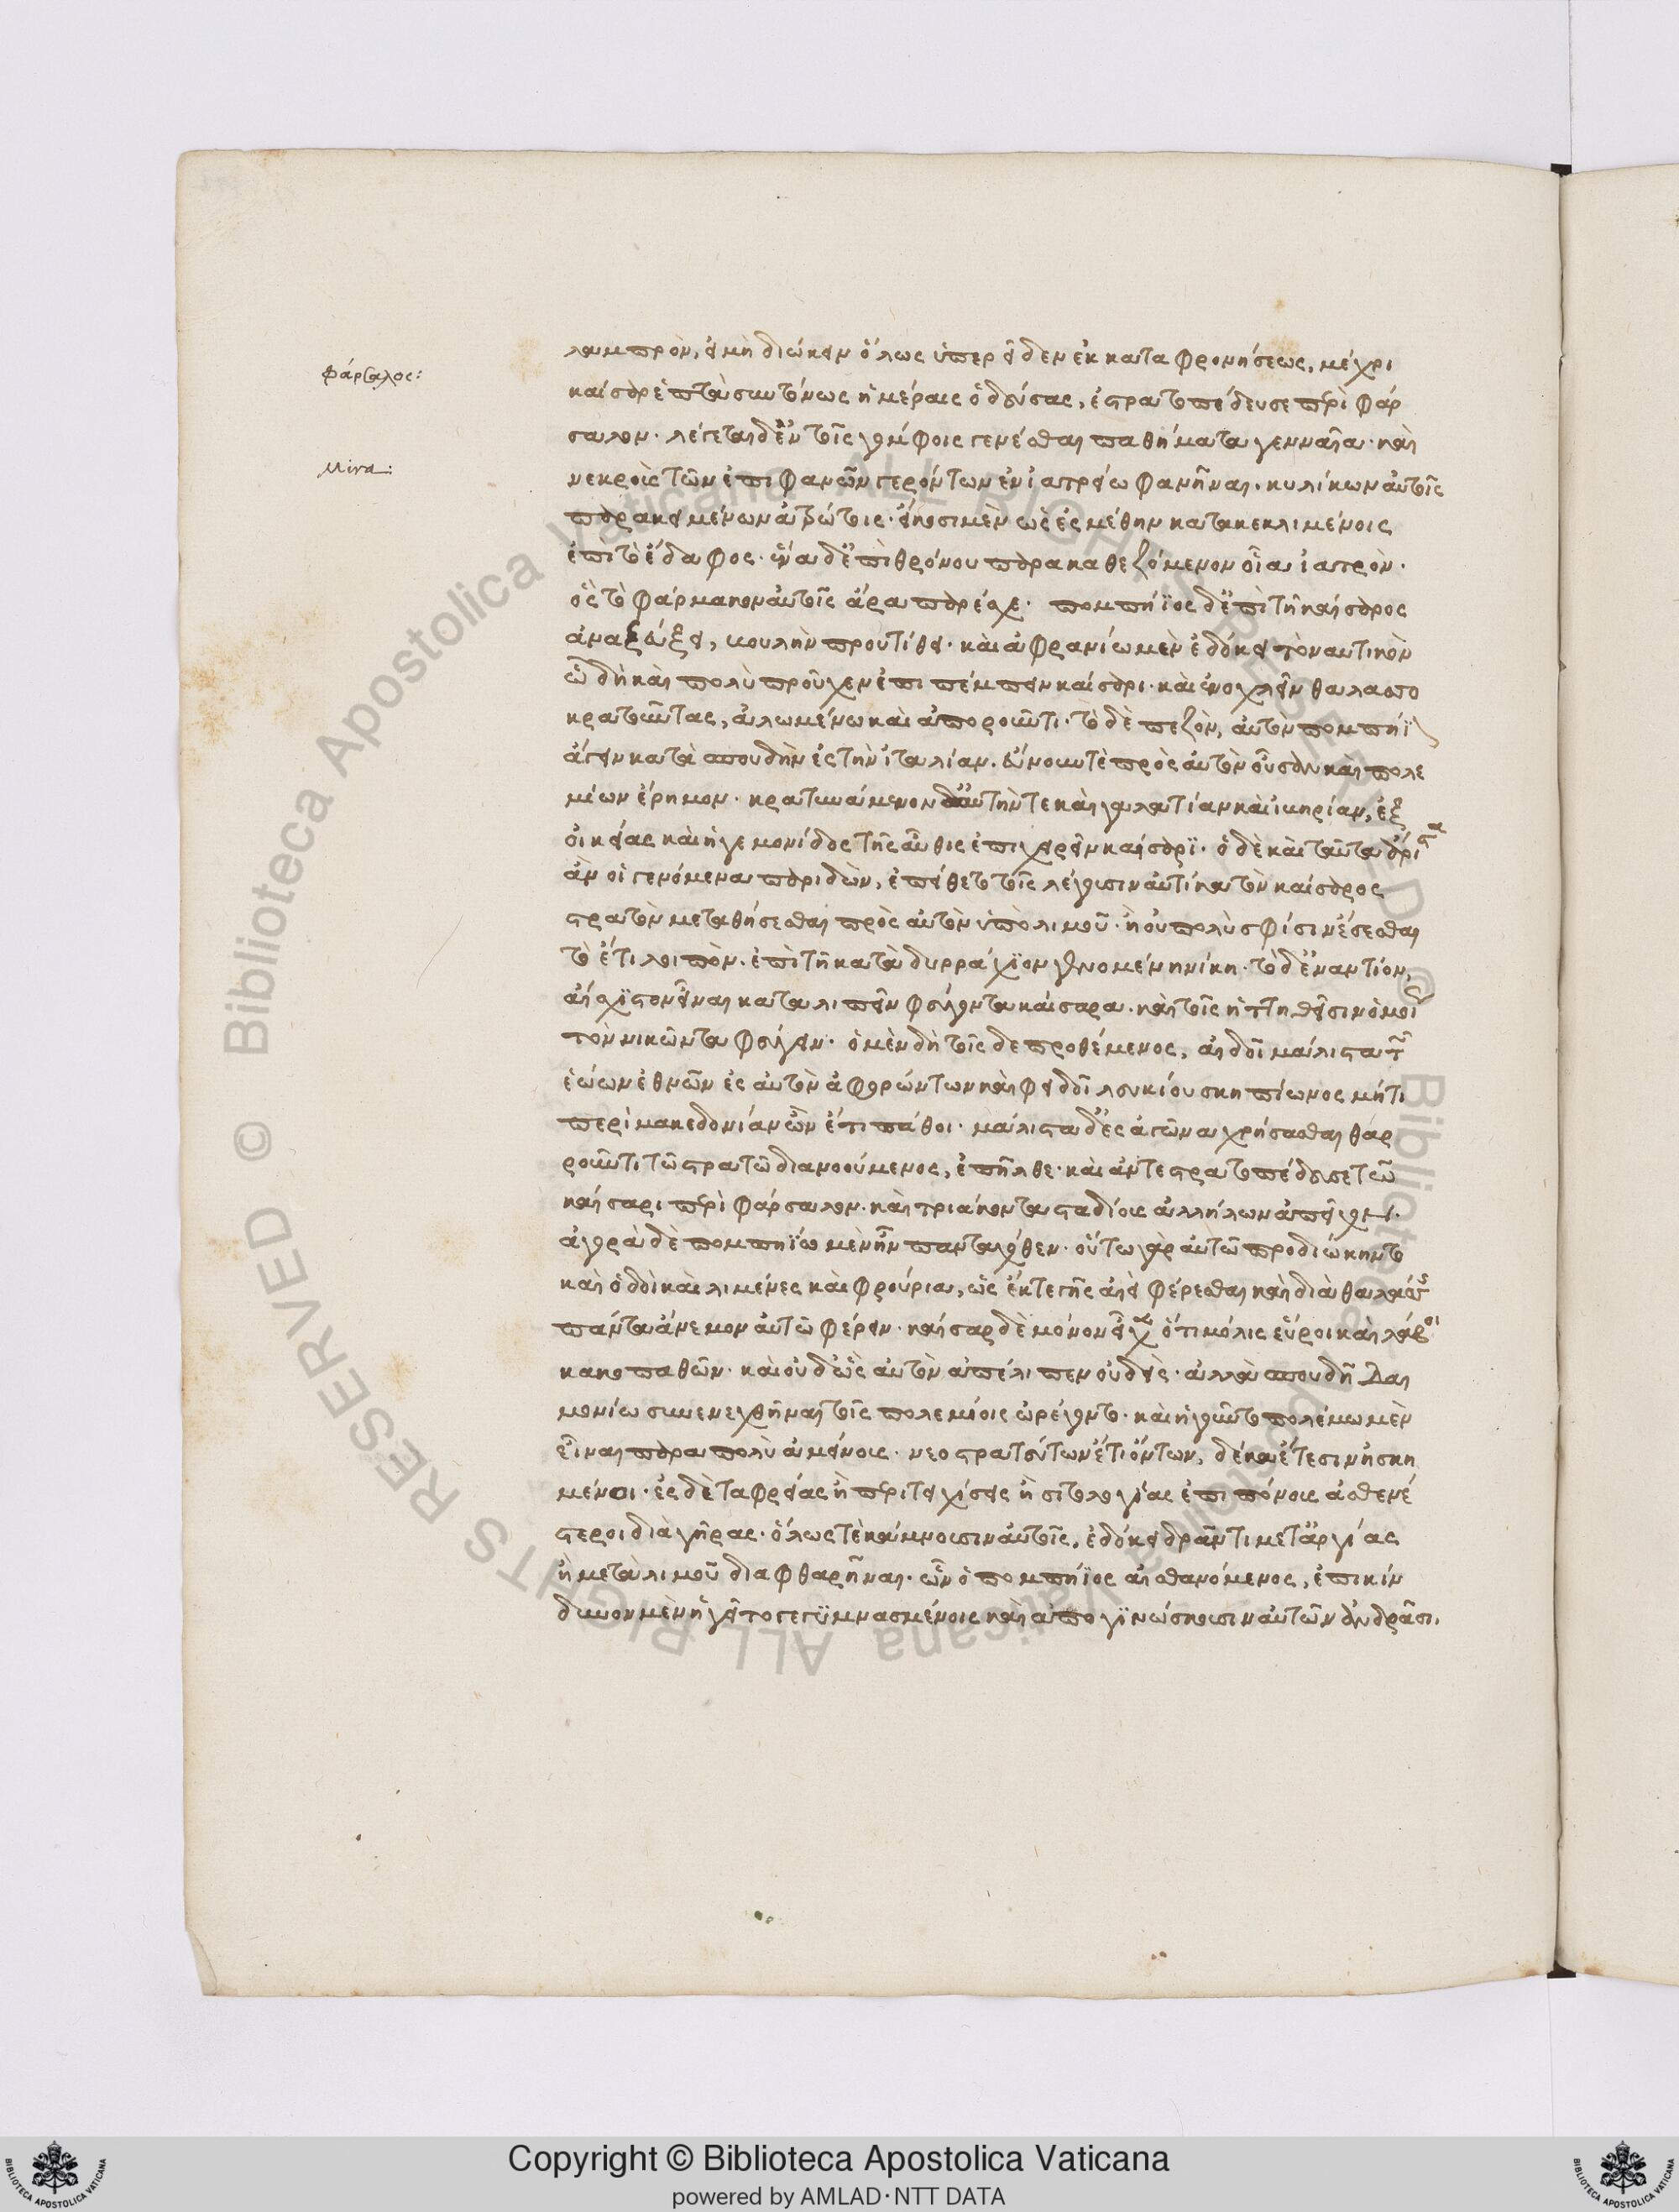 φάρσαλος:
Mira:
λαμπρὸν, εἰ μὴ διώκειν ὅλως ὑπεριδεν ἐκ καταφρονήσεως, μέχρι
καίσαρ ἑπτὰ συντόνως ἡμέραις ὁδεύσας, ἐστρατοπέδευσε περὶ φάρ
σαλον. λέγεται δ' ἐν τοῖς γόμφοις γενέσθαι παθήματα γενναῖα. καὶ
νεκροὺς τῶν ἐπιφανῶν γερόντων ἐν ἰατρείω φανῆναι. κυλίκων αὐτοῖς
παρακειμένων ἀτρώτοις. εἴκοσι μὲν ὡς ἐς μέθην κατακεκλιμένοις
ἐπὶ τὸ ἔδαφος. ἕνα δ' ἐπὶ θρόνου παρακαθεζόμενον οἷα ἰατρὸν.
ὃς τὸ φάρμακον αὐτοῖς ἄρα παρέσχε. πομπήϊος δ' ἐπὶ τῆ καίσαρος
ἀναζεύξει, βουλὴν προυτίθει. καὶ ἀφρανίω μὲν ἐδόκει τὸ ναυτικὸν
ὧ δὴ καὶ πολὺ προῦχεν ἐπιπέμπειν καίσαρι. καὶ ἐνοχλεῖν θαλασσο
κρατοῦντας, ἀλωμένω καὶ ἀποροῦντι. τὸ δὲ πεζὸν, αὐτὸν πομπήϊ
ἄγειν κατὰ σπουδὴν ἐς τὴν ἰταλίαν. εὔνουν τὲ πρὸς αὐτὸν οὖσαν καὶ πολε
μίων ἔρημον. κρατυνάμενον δ' αὐτήν τε καὶ γαλατίαν καὶ ἰβηρίαν, ἐξ
οἰκείας καὶ ἡγεμονίδος γῆς αὖθις ἐπιχειρεῖν καίσαρϊ. ὁ δὲ καὶ ταῦτα ἄριστα
ἂν οἱ γενόμενα παριδὼν, ἐπείθετο τοῖς λέγουσιν αὐτίκα τὸν καίσαρος
στρατὸν μεταθήσεσθαι πρὸς αὐτὸν ὑπὸ λιμοῦ. ἢ οὐ πολὺ σφίσιν ἔσεσθαι
τὸ ἔτι λοιπὸν. ἐπὶ τῆ κατὰ δυρράχϊον γενομένη νίκη. τὸ δ' ἐναντίον,
αἴσχϊστον εἶναι καταλιπεῖν φεύγοντα καίσαρα. καὶ τοῖς ἡττηθεῖσιν ὁμοί
τὸν νικῶντα φεύγειν. ὁ μὲν δὴ τοῖς δε προθέμενος, αἰδοῖ μάλιστα τῶν
ἑώων ἐθνῶν ἐς αὐτὸν ἀφορώντων καὶ φειδοῖ λουκίου σκηπίωνος μήτι
περὶ μακεδονίαν ὢν ἔτι πάθοι. μάλιστα δ' ἐς ἀγῶνα χρήσασθαι θαρ
ροῦντι τῶ στρατῶ διανοούμενος, ἐπῆλθε. καὶ ἀντεστρατοπέδευσε τῶ
καίσαρι περὶ φάρσαλον. καὶ τριάκοντα σταδίους ἀλλήλων ἀπεῖχον.
ἀγορὰ δὲ πομπηΐω μὲν ἦν πανταχόθεν. οὕτω γὰρ αὐτῶ προδιώκητο
καὶ ὁδοὶ καὶ λιμένες καὶ φρούρια, ὡς ἔκ τε γῆς ἀεὶ φέρεσθαι καὶ διὰ θαλάσσης
πάντα ἄνεμον αὐτῶ φέρειν. καίσαρ δὲ μόνον εἶχεν ὅτι μόλις εὕροι καὶ λάβοι
κακοπαθῶν. καὶ οὐδ' ὣς αὐτὸν ἀπέλιπεν οὐδεὶς. ἀλλὰ σπουδῆ δαι
μονίω συνενεχθῆναι τοῖς πολεμίοις ὠρέγοντο. καὶ ἡγοῦντο πολέμω μὲν
εἶναι παρα πολὺ ἀμείνους. νεοστρατεύτων ἔτι ὄντων, δέκα ἔτεσιν ἠσκη
μένοι. ἐς δὲ ταφρείας ἢ περιτειχίσεις ἢ σιτολογίας ἐπιπόνους ἀσθενέ
στεροι διὰ γῆρας. ὅλως τὲ κάμνουσιν αὐτοῖς, ἐδόκει δρῶντι μετ' ἀργίας
ἢ μετὰ λιμοῦ διαφθαρῆναι. ὧν ὁ πομπήϊος αἰσθανόμενος, ἐπικίν
δυνον μὲν ἡγεῖτο γεγϋμνασμένοις καὶ ἀπογϊνώσκουσιν αὑτῶν ἀνδράσι,